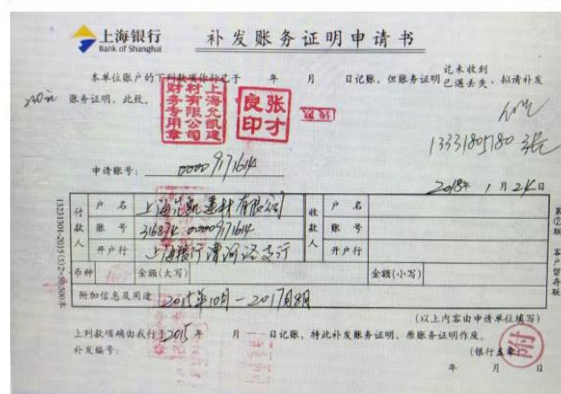 上海银行
Bank of Shanghai
补发账务证明申请书
本单位账户的下列款项你行已于 年 月 日记账，但账务证明
迄未收到
已遇丢失
，拟请补发
账务证明，此致。
上海允凯建
材有限公司
财务专用章
张才
良印
13331805180 张
申请账号：00009171614
2018年 1月 24日
付款人
户 名 上海允凯建材有限公司
账 号 316874-00009171614
开户行 上海银行漕河泾支行
收款人
户 名
账 号
开户行
币种 金额(大写) 金额(小写)
附加信息及用途 2015年10月-2017年8月
(以上内容由申请单位填写)
上列款项确由我行于2015年 月 日记账，特此补发账务证明，原账务证明作废。
补发编号： (银行盖章)
附
年 月 日
第②联 客户留存联